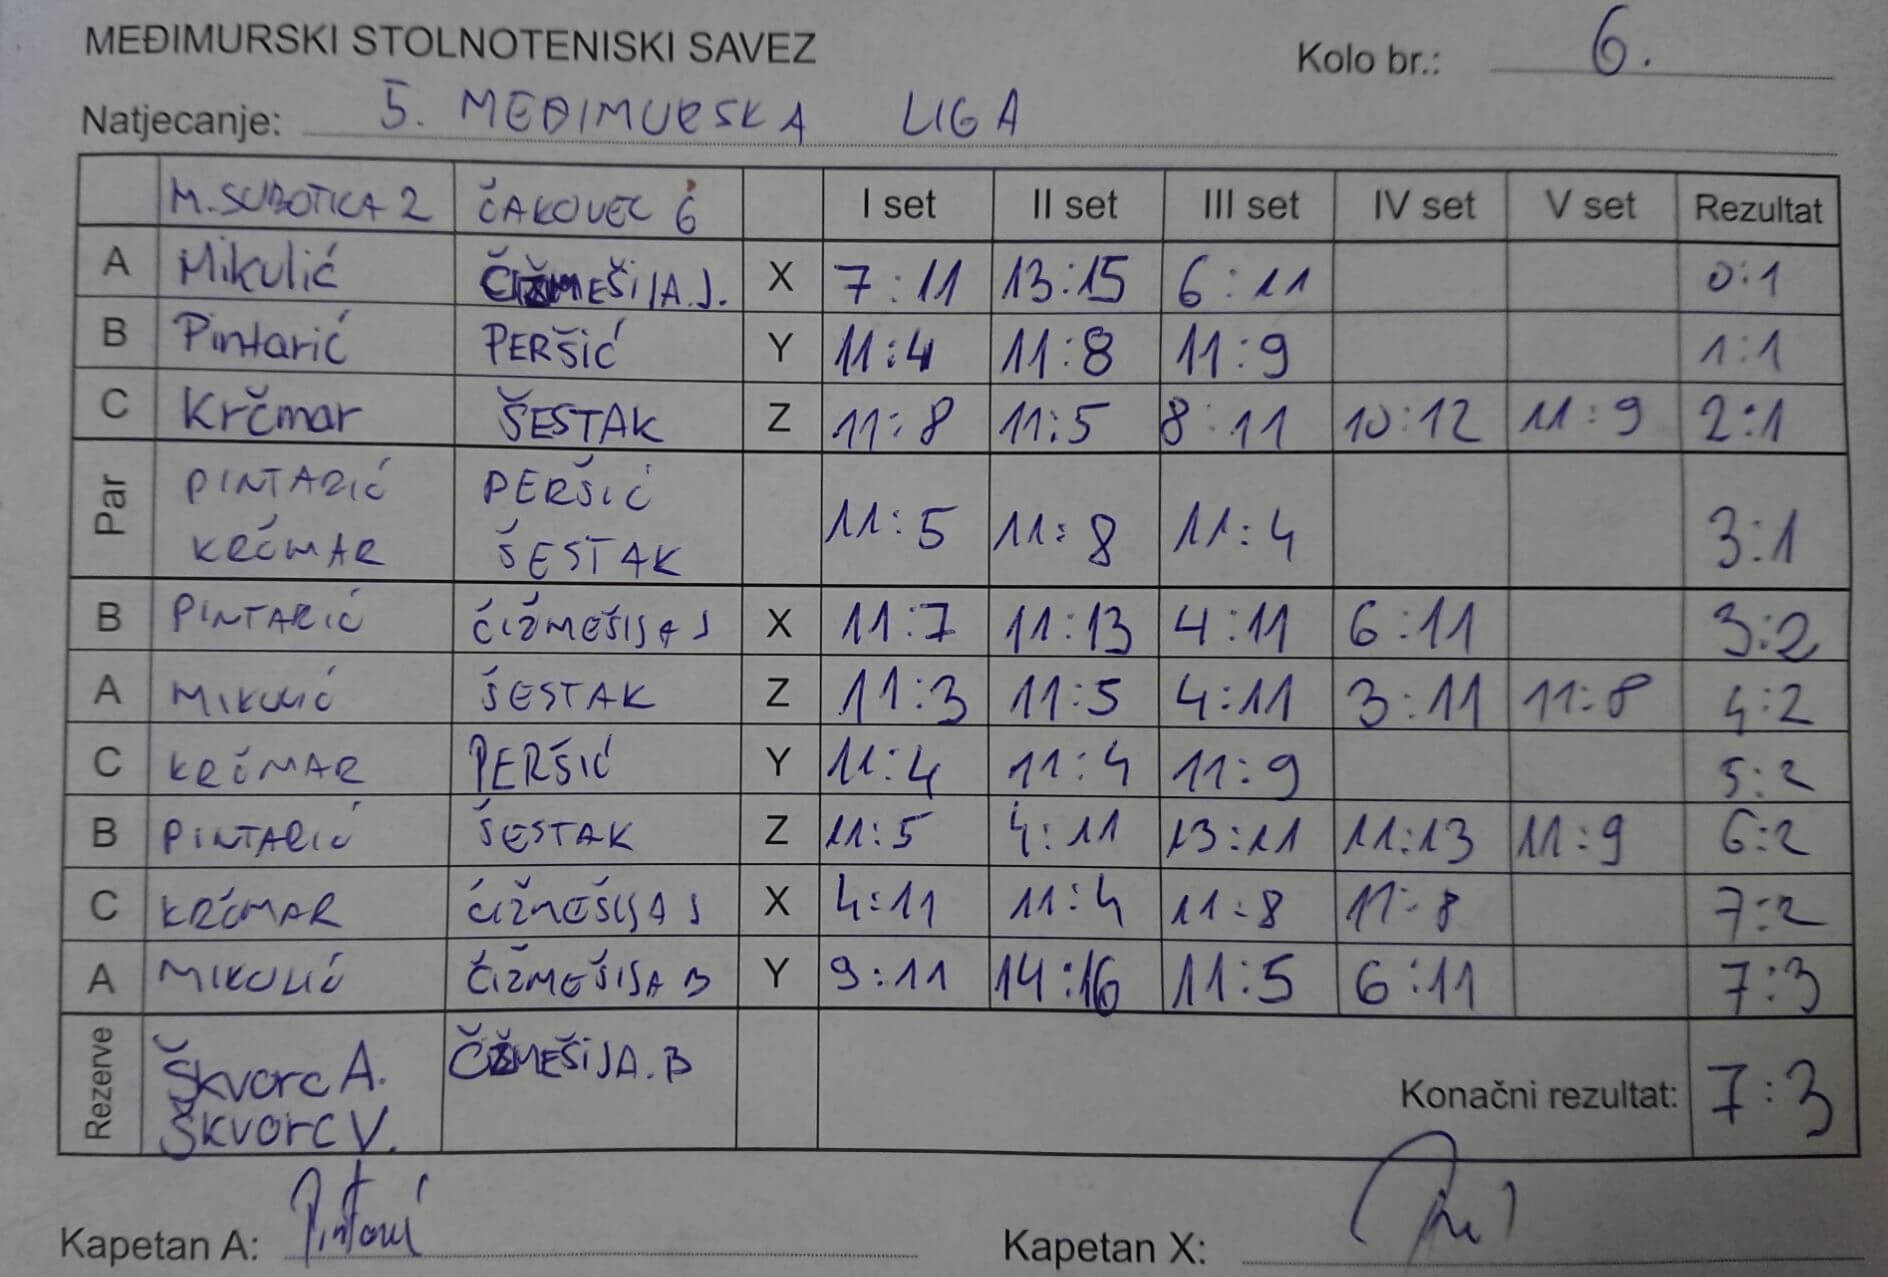 MEĐIMURSKI STOLNOTENISKI SAVEZ Kolo br.: 6.
Natjecanje: 5. MEĐIMURSKA LIGA
M. SUBOTICA 2 ČAKOVEC 6 I set II set III set IV set V set Rezultat
A Mikulić ČIŽMEŠIJA.J. X 7:11 13:15 6:11 0:1
B Pintarić PERŠIĆ Y 11:4 11:8 11:9 1:1
C Krčmar ŠESTAK Z 11:8 11:5 8:11 10:12 11:9 2:1
Par PINTARIĆ PERŠIĆ 11:5 11:8 11:4 3:1
KRČMAR ŠESTAK
B PINTARIĆ ČIŽMEŠIJA J X 11:7 11:13 4:11 6:11 3:2
A MIKULIĆ ŠESTAK Z 11:3 11:5 4:11 3:11 11:8 4:2
C KRČMAR PERŠIĆ Y 11:4 11:4 11:9 5:2
B PINTARIĆ ŠESTAK Z 11:5 4:11 13:11 11:13 11:9 6:2
C KRČMAR ČIŽMEŠIJA J X 4:11 11:4 11:8 11:8 7:2
A MIKULIĆ ČIŽMEŠIJA B Y 9:11 14:16 11:5 6:11 7:3
Rezerve Škvorc A. ČIŽMEŠIJA.B Konačni rezultat: 7:3
Škvorc V.
Kapetan A: Pintarić Kapetan X: